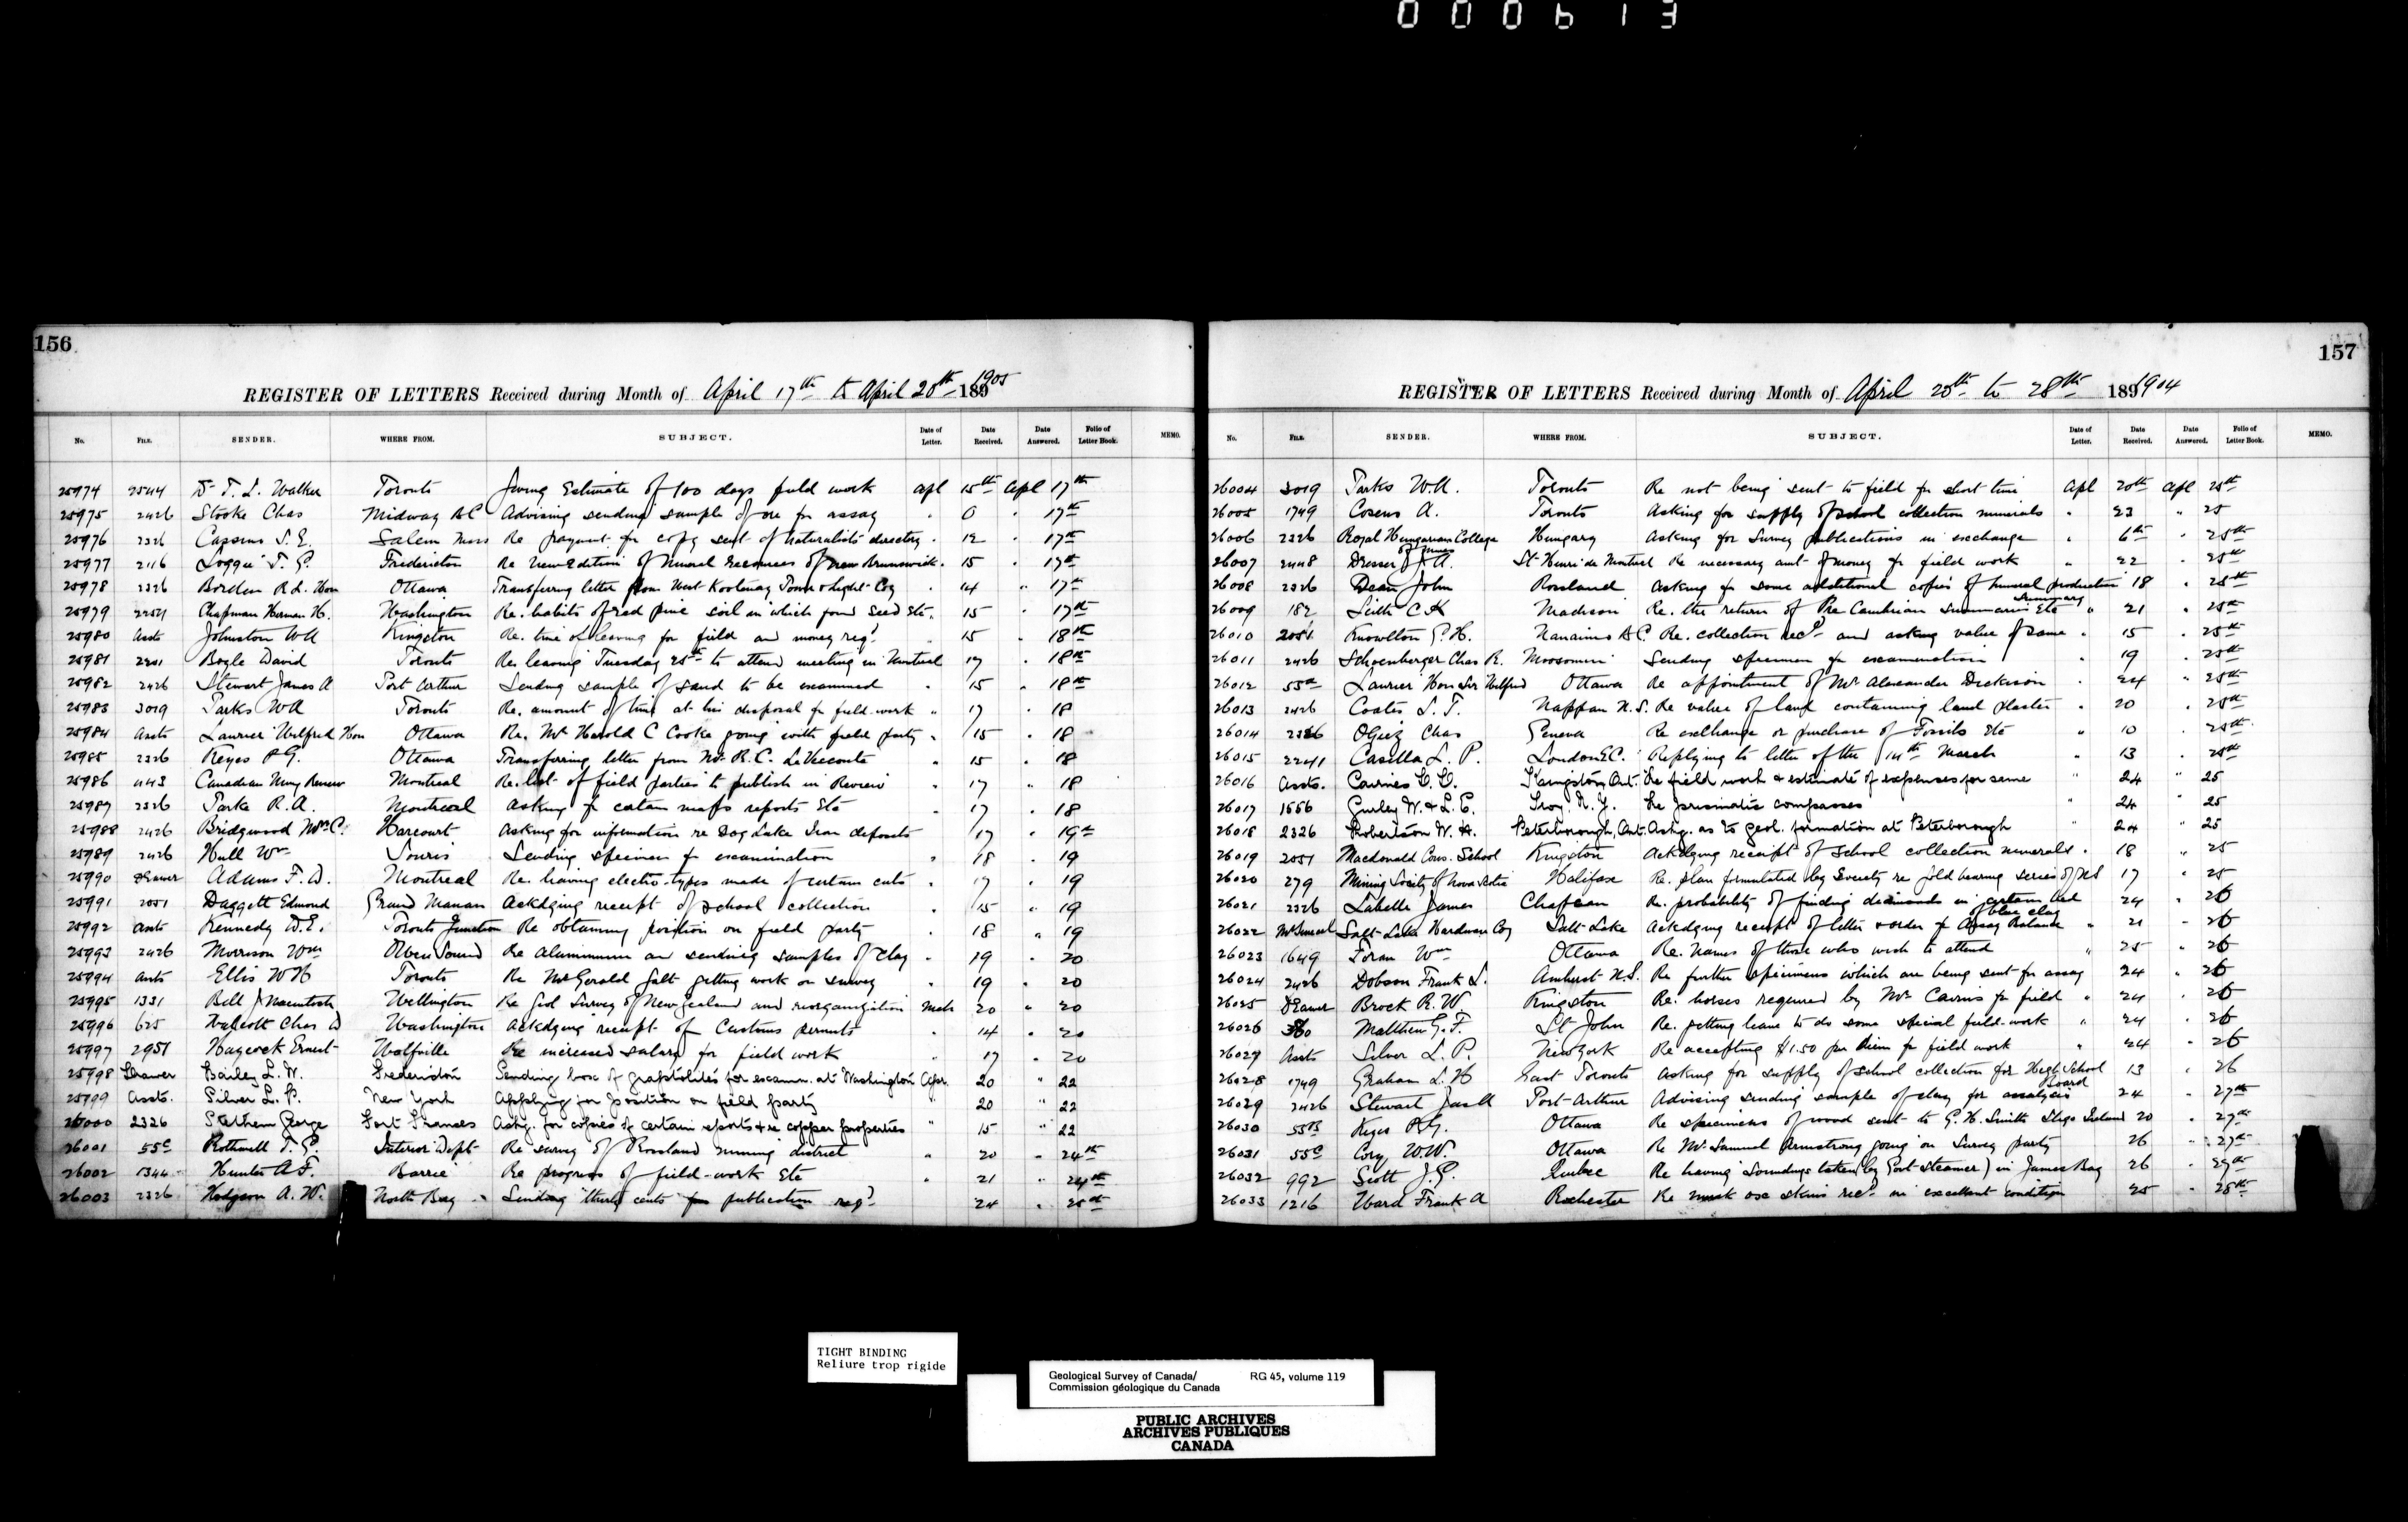 000613
156
REGISTER OF LETTERS Received during Month of April 17th to April 20th 1891905
No. FILE. SENDER. WHERE FROM. SUBJECT. Date of Letter. Date Received. Date Answered. Folio of Letter Book. MEMO.
25974 2544 Dr T. L. Walker Toronto Giving Estimate of 100 days field work Apl 15th Apl 17th
25975 2426 Stooke Chas Midway B C Advising sending sample of ore for assay " " 17th
25976 2326 Cassino S. E. Salem Mass Re payment for copy sent of naturalists directory " 12 " 17th
25977 2116 Loggie T. G. Fredericton Re New Edition of Mineral Resources of New Brunswick " 15 " 17th
25978 2326 Borden R L. Hon Ottawa Transferring letter from West Kootenay Power & Light Coy " 14 " 17th
25979 Chapman Herman H. Washington Re. habits of red pine soil in which found seed Etc " 15 " 17th
25980 Assts Johnston W A Kingston Re. time of leaving for field and money reqd " 15 " 18th
25981 2201 Boyle David Toronto Re. leaving Tuesday 25th to attend meeting in Montreal 17 " 18th
25982 2426 Stewart James A Port Arthur Sending sample of sand to be examined " 15 " 18th
25983 3019 Parks W A Toronto Re. amount of time at his disposal for field-work " 17 " 18
25984 Assts Laurier Wilfred Hon Ottawa Re. Mr Harold C Cooke going with field party " 15 " 18
25985 2326 Keyes P G. Ottawa Transferring letter from Mr R. C. LeVesconte " 15 " 18
25986 Canadian Ming Review Montreal Re. list of field parties to publish in Review " 17 " 18
25987 2326 Parke R. A. Montreal Asking for certain maps reports Etc " 17 " 18
25988 2426 Bridgwood Wm C. Harcourt Asking for information re Dog Lake Iron deposits 17 " 19th
25989 2426 Hull Wm Souris Sending specimen for examination " 18 " 19
25990 Drawer Adams F. D. Montreal Re. having electro-types made of certain cuts " 17 " 19
25991 2051 Daggett Edmond Grand Manan Ackdging receipt of school collection " 15 " 19
25992 Assts Kennedy D. E. Toronto Junction Re obtaining position on field party " 18 " 19
25993 2426 Morrison Wm Owen Sound Re Aluminum an sending samples of clay " 19 " 20
25994 Assts Ellis W H Toronto Re Mr Gerald Galt getting work on survey " 19 " 20
25995 1331 Bell J Macintosh Wellington Re Geol Survey of New Zealand and reorganization Mch 20 " 20
25996 625 Walcott Chas D Washington Ackdging receipt of Customs permits " 14 " 20
25997 2951 Haycock Ernest Wolfville Re increased salary for field work " 17 " 20
25998 Drawer Bailey L. W. Fredericton Sending box of graptolites for examn. at Washington Apr. 20 " 22
25999 Assts. Silver L. P. New York Applying for position on field party 20 " 22
26000 2326 Stethem George Fort Frances Askg. for copies of certain reports & re copper properties " 15 " 22
26001 55c Rothwell T. G. Interior Dept Re survey of Rossland mining district " 20 " 24th
26002 1344 Hunter A F. Barrie Re progress of field-work Etc " 21 " 24th
26003 2326 Hodgson A. W. North Bay Sending thirty cents for publication reqd 24 " 25th
157
REGISTER OF LETTERS Received during Month of April 25th to 28th 1891904
No. FILE. SENDER. WHERE FROM. SUBJECT. Date of Letter. Date Received. Date Answered. Folio of Letter Book. MEMO.
26004 3019 Parks W. A. Toronto Re not being sent to field for short time Apl 20th Apl 25th
26005 1749 Cosens A. Toronto Asking for supply of school collection minerals " 23 " 25
26006 2326 Royal Hungarian College of Mines Hungary Asking for Survey publications in exchange " 6th " 25th
26007 2448 Dresser J. A. St Henri de Montreal Re necessary amt of money for field work " 22 " 25th
26008 2326 Dean John Rossland Asking for some additional copies of mineral production Summary 18 " 25th
26009 182 Leith C K Madison Re. the return of Pre Cambrian Summaries Etc " 21 " 25th
26010 2051 Knowlton G. H. Nanaimo B C. Re. collection recd and asking value of same " 15 " 25th
26011 2426 Schoenberger Chas R. Moosomin Sending specimen for examination " 19 " 25th
26012 55a Laurier Hon Sir Wilfred Ottawa Re appointment of Mr Alexander Dickison " 24 " 25th
26013 2426 Coates S. T. Nappan N. S. Re value of land containing land plaster " 20 " 25th
26014 2326 Ogiez Chas Geneva Re exchange or purchase of Fossils Etc " 10 " 25th
26015 2241 Casella L. P. London E.C. Replying to letter of the 14th March " 13 " 25th
26016 Assts. Cairnes D. D. Kingston, Ont. Re field work & estimate of expenses for same " 24 " 25
26017 1556 Gurley W. & L. E. Troy N. Y. Re prismatic compasses " 24 " 25
26018 2326 Robertson W. H. Peterborough, Ont. Askg. as to geol. formation at Peterborough " 24 " 25
26019 2051 Macdonald Cons. School Kingston Ackdging receipt of school collection minerals " 18 " 25
26020 279 Mining Society of Nova Scotia Halifax Re. plan formulated by Society re gold bearing series of N S 17 " 25
26021 2326 Labelle James Chapeau Re. probability of finding diamonds in certain bed of blue clay 24 " 26
26022 Salt-Lake Hardware Coy Salt-Lake Ackdging receipt of letter & order for Assay Balance " 21 " 26
26023 1649 Foran Wm Ottawa Re. Names of those who wish to attend " 25 " 26
26024 2426 Dobson Frank L. Amherst N. S. Re further specimens which are being sent for assay 24 " 26
26025 Drawer Brock R. W. Kingston Re. horses required by Mr Cairns for field " 24 " 26
26026 Matthew G. F. St John Re. getting leave to do some special field-work " 24 " 26
26027 Assts Silver L. P. New York Re accepting $1.50 per diem for field work " 24 " 26
26028 1749 Graham L. H East Toronto Asking for supply of school collection for High School Board 13 " 26
26029 2426 Stewart Jas A Port-Arthur Advising sending sample of clay for analysis 24 " 27th
26030 55B Keyes P. G. Ottawa Re specimens of wood sent to G. H. Smith Sligo Ireland 20 " 27th
26031 55c Cory W. W. Ottawa Re Mr Samuel Armstrong going on Survey party 26 " 27th
26032 992 Scott J. G. Quebec Re having soundings taken (by Govt-steamer) in James Bay 26 " 27th
26033 1216 Ward Frank A Rochester Re musk ox skins recd in excellent condition 25 " 28th
TIGHT BINDING
Reliure trop rigide
Geological Survey of Canada/ RG 45, volume 119
Commission géologique du Canada
PUBLIC ARCHIVES
ARCHIVES PUBLIQUES
CANADA